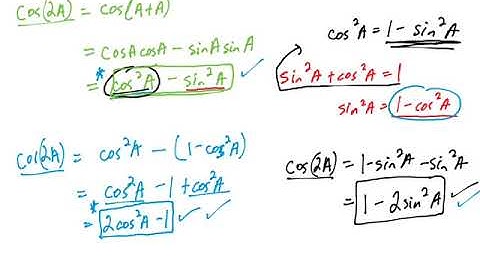 Cos(2A) = cos(A+A)
= cosAcosA - sinAsinA
* = cos²A - sin²A ✓
cos²A = 1 - sin²A
sin²A + cos²A = 1
sin²A = 1 - cos²A
Cos(2A) = cos²A - (1-cos²A)
= cos²A - 1 + cos²A
* = 2cos²A - 1 ✓ ✓
Cos(2A) = 1 - sin²A - sin²A
= 1 - 2sin²A ✓ ✓